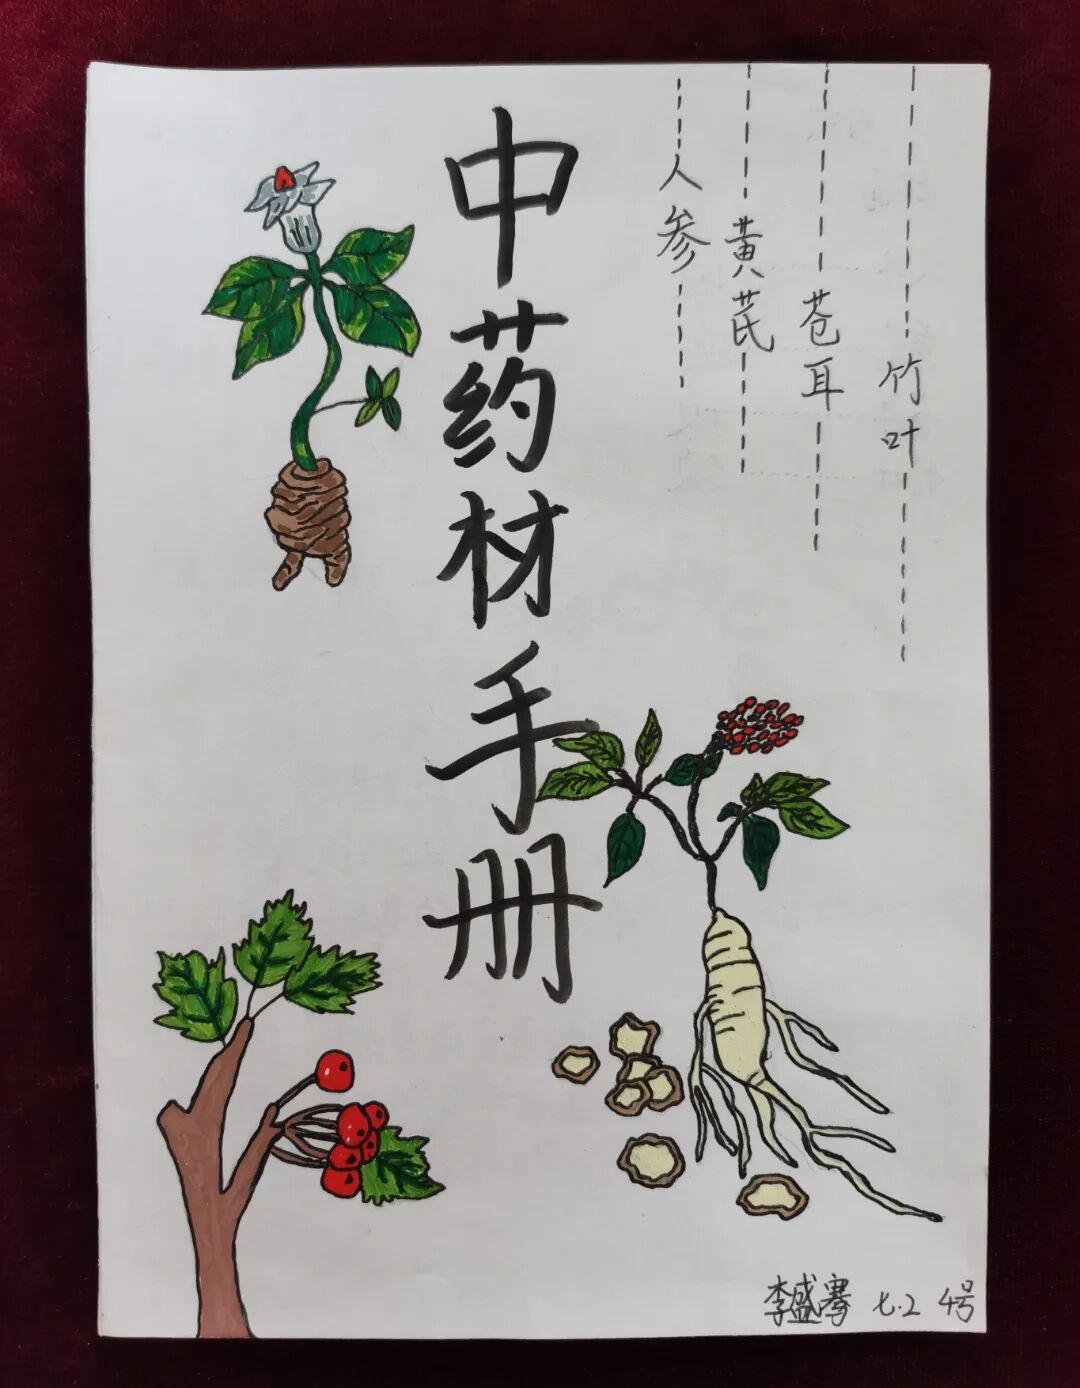 竹叶
苍耳
黄芪
人参
中药材手册
李盛骞 七.2 4号